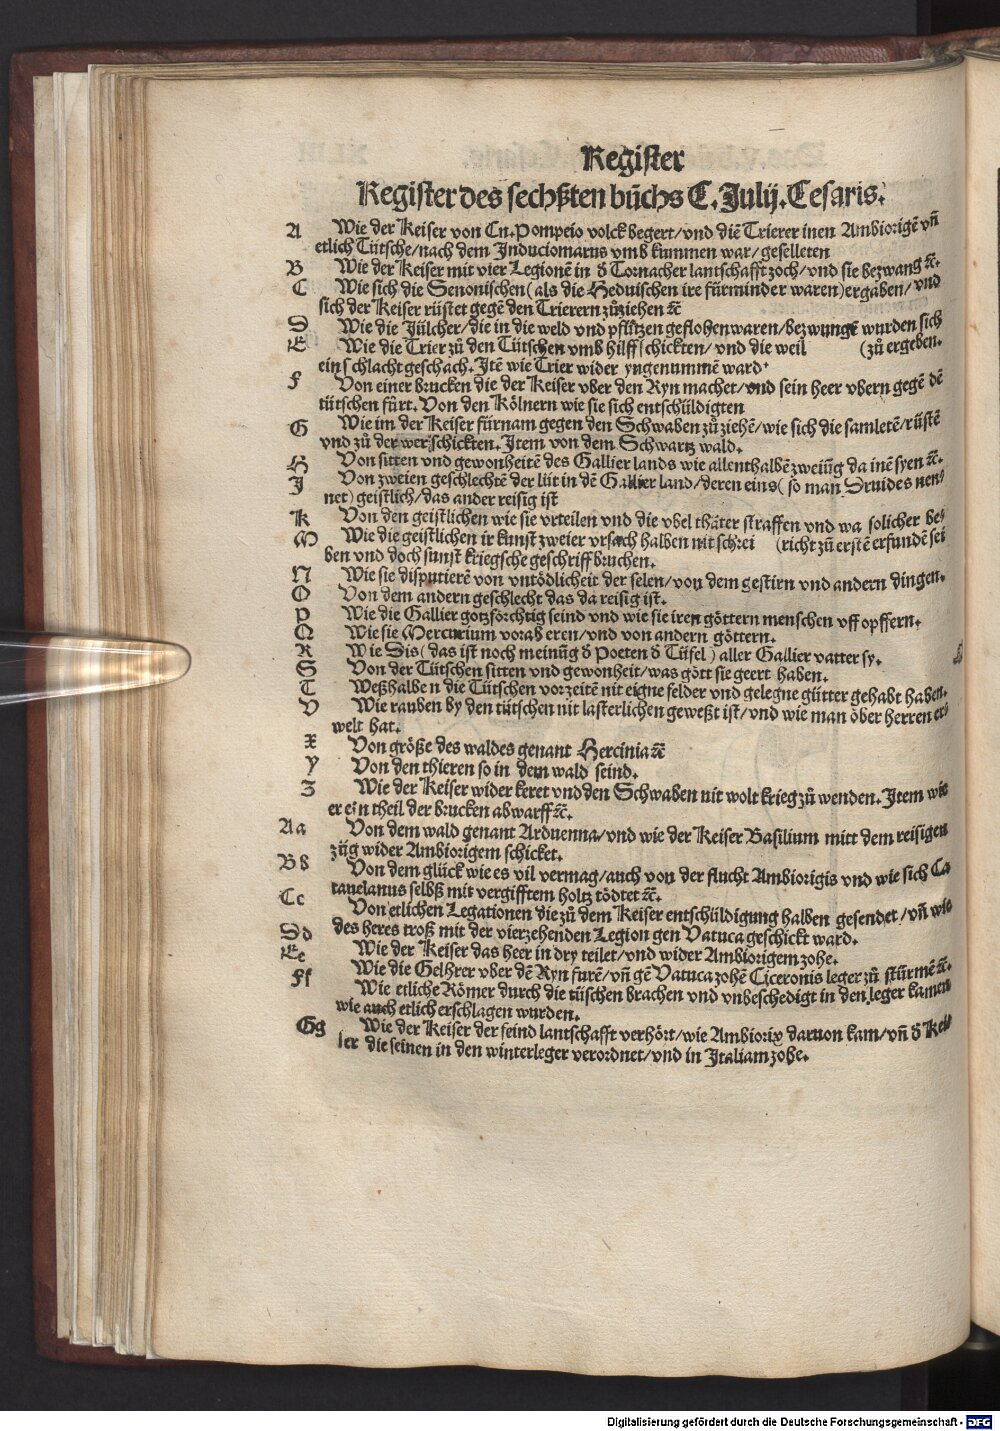 Register
Register des sechßten bůchs C. Julij. Cesaris.
A Wie der Keiser von Cn. Pompeio volck begert/vnd diẽ Trierer inen Ambiorigẽ vñ
etlich Tütsche/nach dem Induciomarus vmb kummen war/geselleten
B Wie der Keiser mit vier Legionẽ in d̕ Tornacher lantschafft zoch/vnd sie bezwang ꝛc̃.
C Wie sich die Senonischen (als die Heduischen ire fürminder waren) ergaben/vnd
sich der Keiser rüstet gegẽ den Trierern zůziehen ꝛc̃
D Wie die Jülcher/die in die weld vnd pflitzen geflohen waren/bezwungẽ wurden sich
E Wie die Trier zů den Tütschen vmb hilff schickten/vnd die weil (zů ergeben.
ein schlacht geschach. Itẽ wie Trier wider yngenummẽ ward.
F Von einer brucken die der Keiser vber den Ryn machet/vnd sein heer vbern gegẽ dẽ
tütschen fürt. Von den Kölnern wie sie sich entschüldigten
G Wie im der Keiser fürnam gegen den Schwaben zů ziehẽ/wie sich die samletẽ/rüstẽ
vnd zů der wer schickten. Item von dem Schwartz wald.
H Von sitten vnd gewonheitẽ des Gallier lands wie allenthalbẽ zweiũg da inẽ syen ꝛc̃.
J Von zweien geschlechtẽ der lüt in dẽ Gallier land/deren eins (so man Druides nen-
net) geistlich/das ander reisig ist
K Von den geistlichen wie sie vrteilen vnd die vbel thäter straffen vnd wa solicher be-
M Wie die geistlichen ir kunst zweier vrsach halben nit schrei (richt zů erstẽ erfundẽ sei
ben vnd doch sunst kriegsche geschriff bruchen.
N Wie sie disputierẽ von vntödlicheit der selen/von dem gestirn vnd andern dingen.
O Von dem andern geschlecht das da reisig ist.
P Wie die Gallier gotzförchtig seind vnd wie sie iren göttern menschen vff opffern.
Q Wie sie Mercurium vorab eren/vnd von andern göttern.
R Wie Dis (das ist noch meinũg d̕ Poeten d̕ Tüfel) aller Gallier vatter sy.
S Von der Tütschen sitten vnd gewonheit/was gött sie geert haben.
T Weßhalben die Tütschen vorzeitẽ nit eigne felder vnd gelegne gütter gehabt haben.
V Wie rauben by den tütschen nit lasterlichen geweßt ist/vnd wie man öber herren er-
welt hat.
X Von größe des waldes genant Hercinia ꝛc̃
Y Von den thieren so in dem wald seind.
Z Wie der Keiser wider keret vnd den Schwaben nit wolt krieg zů wenden. Item wie
er ein theil der brucken abwarff ꝛc̃.
Aa Von dem wald genant Arduenna/vnd wie der Keiser Basilium mitt dem reisigen
züg wider Ambiorigem schicket.
Bb Von dem glück wie es vil vermag/auch von der flucht Ambiorigis vnd wie sich Ca
tauelanus selbß mit vergifftem holtz tödtet ꝛc̃.
Cc Von etlichen Legationen die zů dem Keiser entschüldigung halben gesendet/vñ wie
des heres troß mit der vierzehenden Legion gen Vatuca geschickt ward.
Dd Wie der Keiser das heer in dry teilet/vnd wider Ambiorigem zohe.
Ee Wie die Gelhrer vber dẽ Ryn furẽ/vñ gẽ Vatuca zohẽ Ciceronis leger zů stürmẽ ꝛc̃.
Ff Wie etliche Römer durch die tüschen brachen vnd vnbeschedigt in den leger kamen
wie auch etlich erschlagen wurden.
Gg Wie der Keiser der feind lantschafft verhört/wie Ambiorix daruon kam/vñ d̕ Kei-
ser die seinen in den winterleger verordnet/vnd in Italiam zohe.
Digitalisierung gefördert durch die Deutsche Forschungsgemeinschaft - DFG